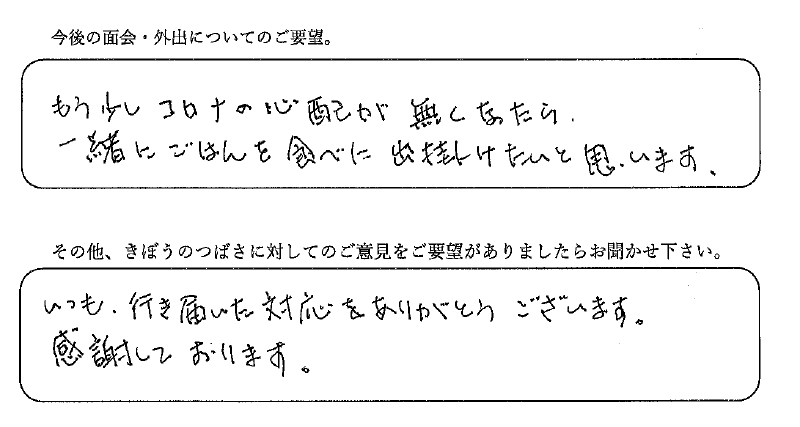 今後の面会・外出についてのご要望。
もう少しコロナの心配が無くなったら、
一緒にごはんを食べに出掛けたいと思います、
その他、きぼうのつばさに対してのご意見をご要望がありましたらお聞かせ下さい。
いつも、行き届いた対応をありがとうございます。
感謝しております。